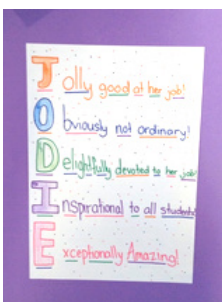 Jolly good at her job!
Obviously not ordinary!
Delightfully devoted to her job
Inspirational to all students
Exceptionally Amazing!